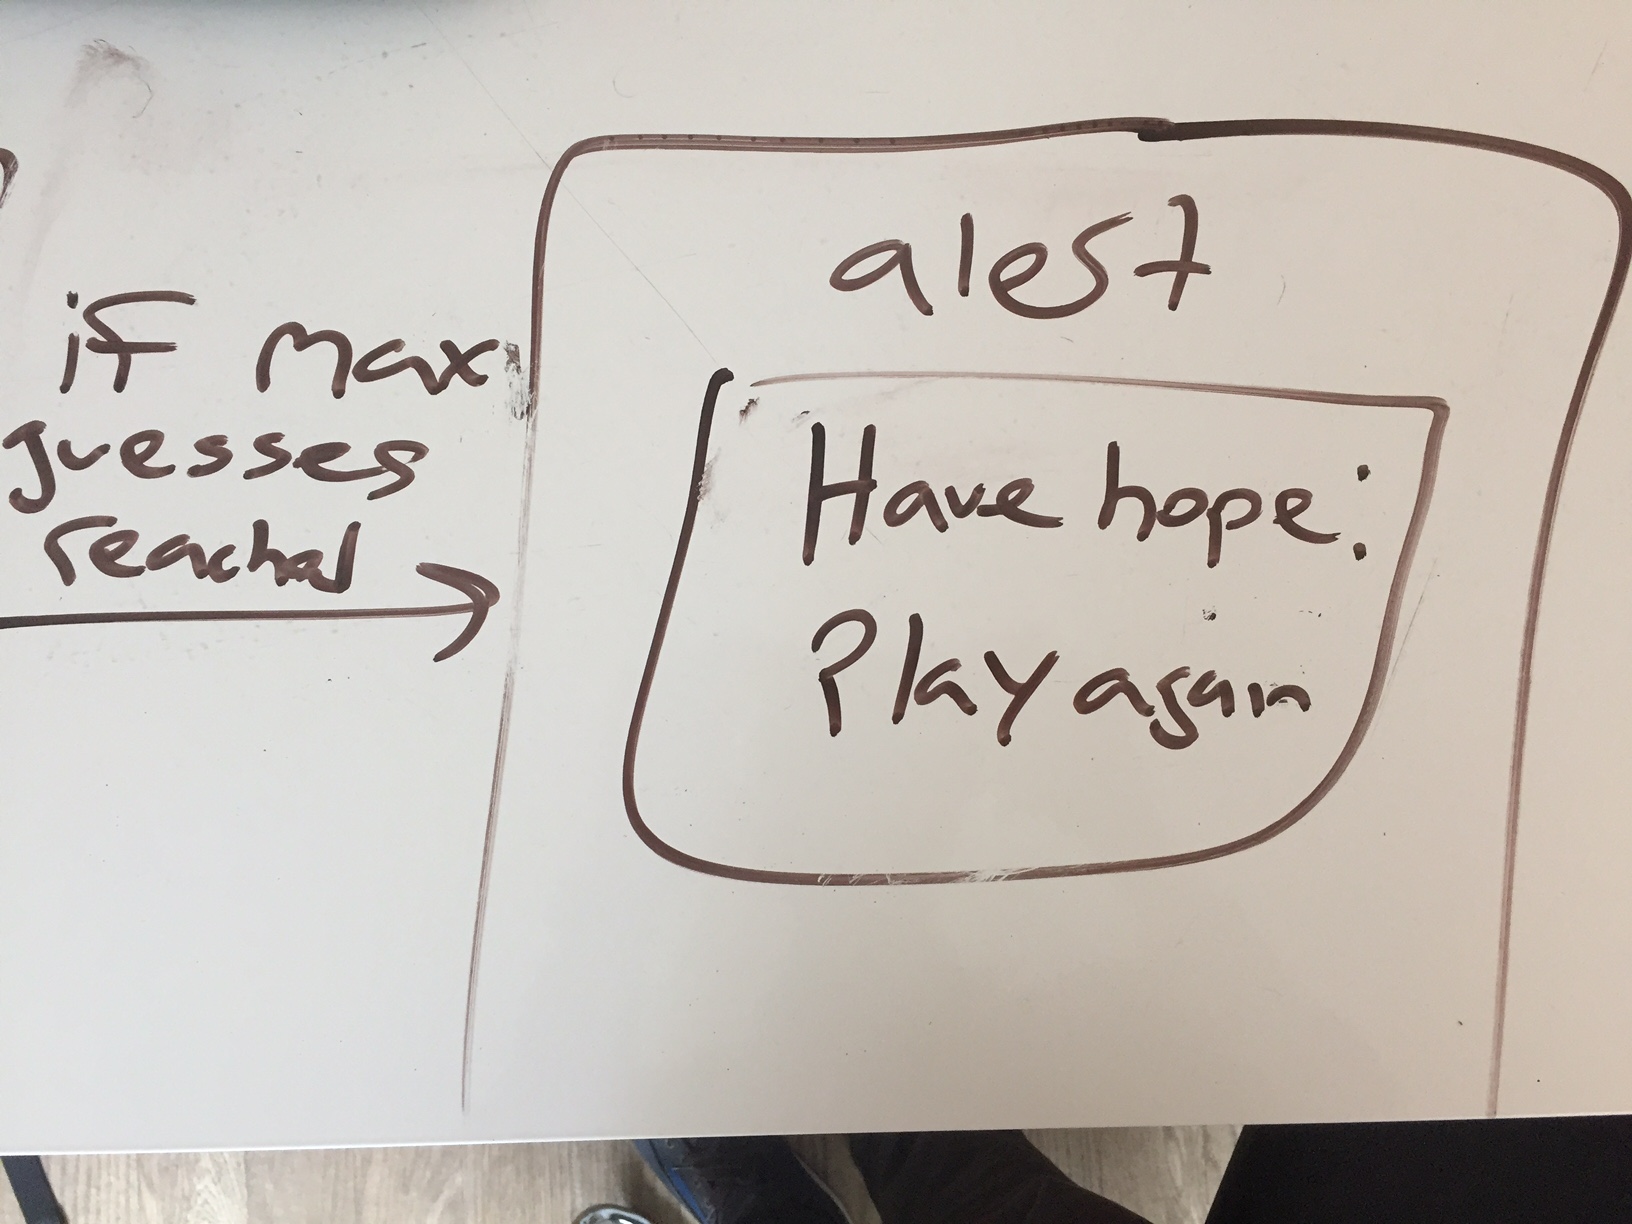 if Max
guesses
reached
alest
Have hope:
Play again